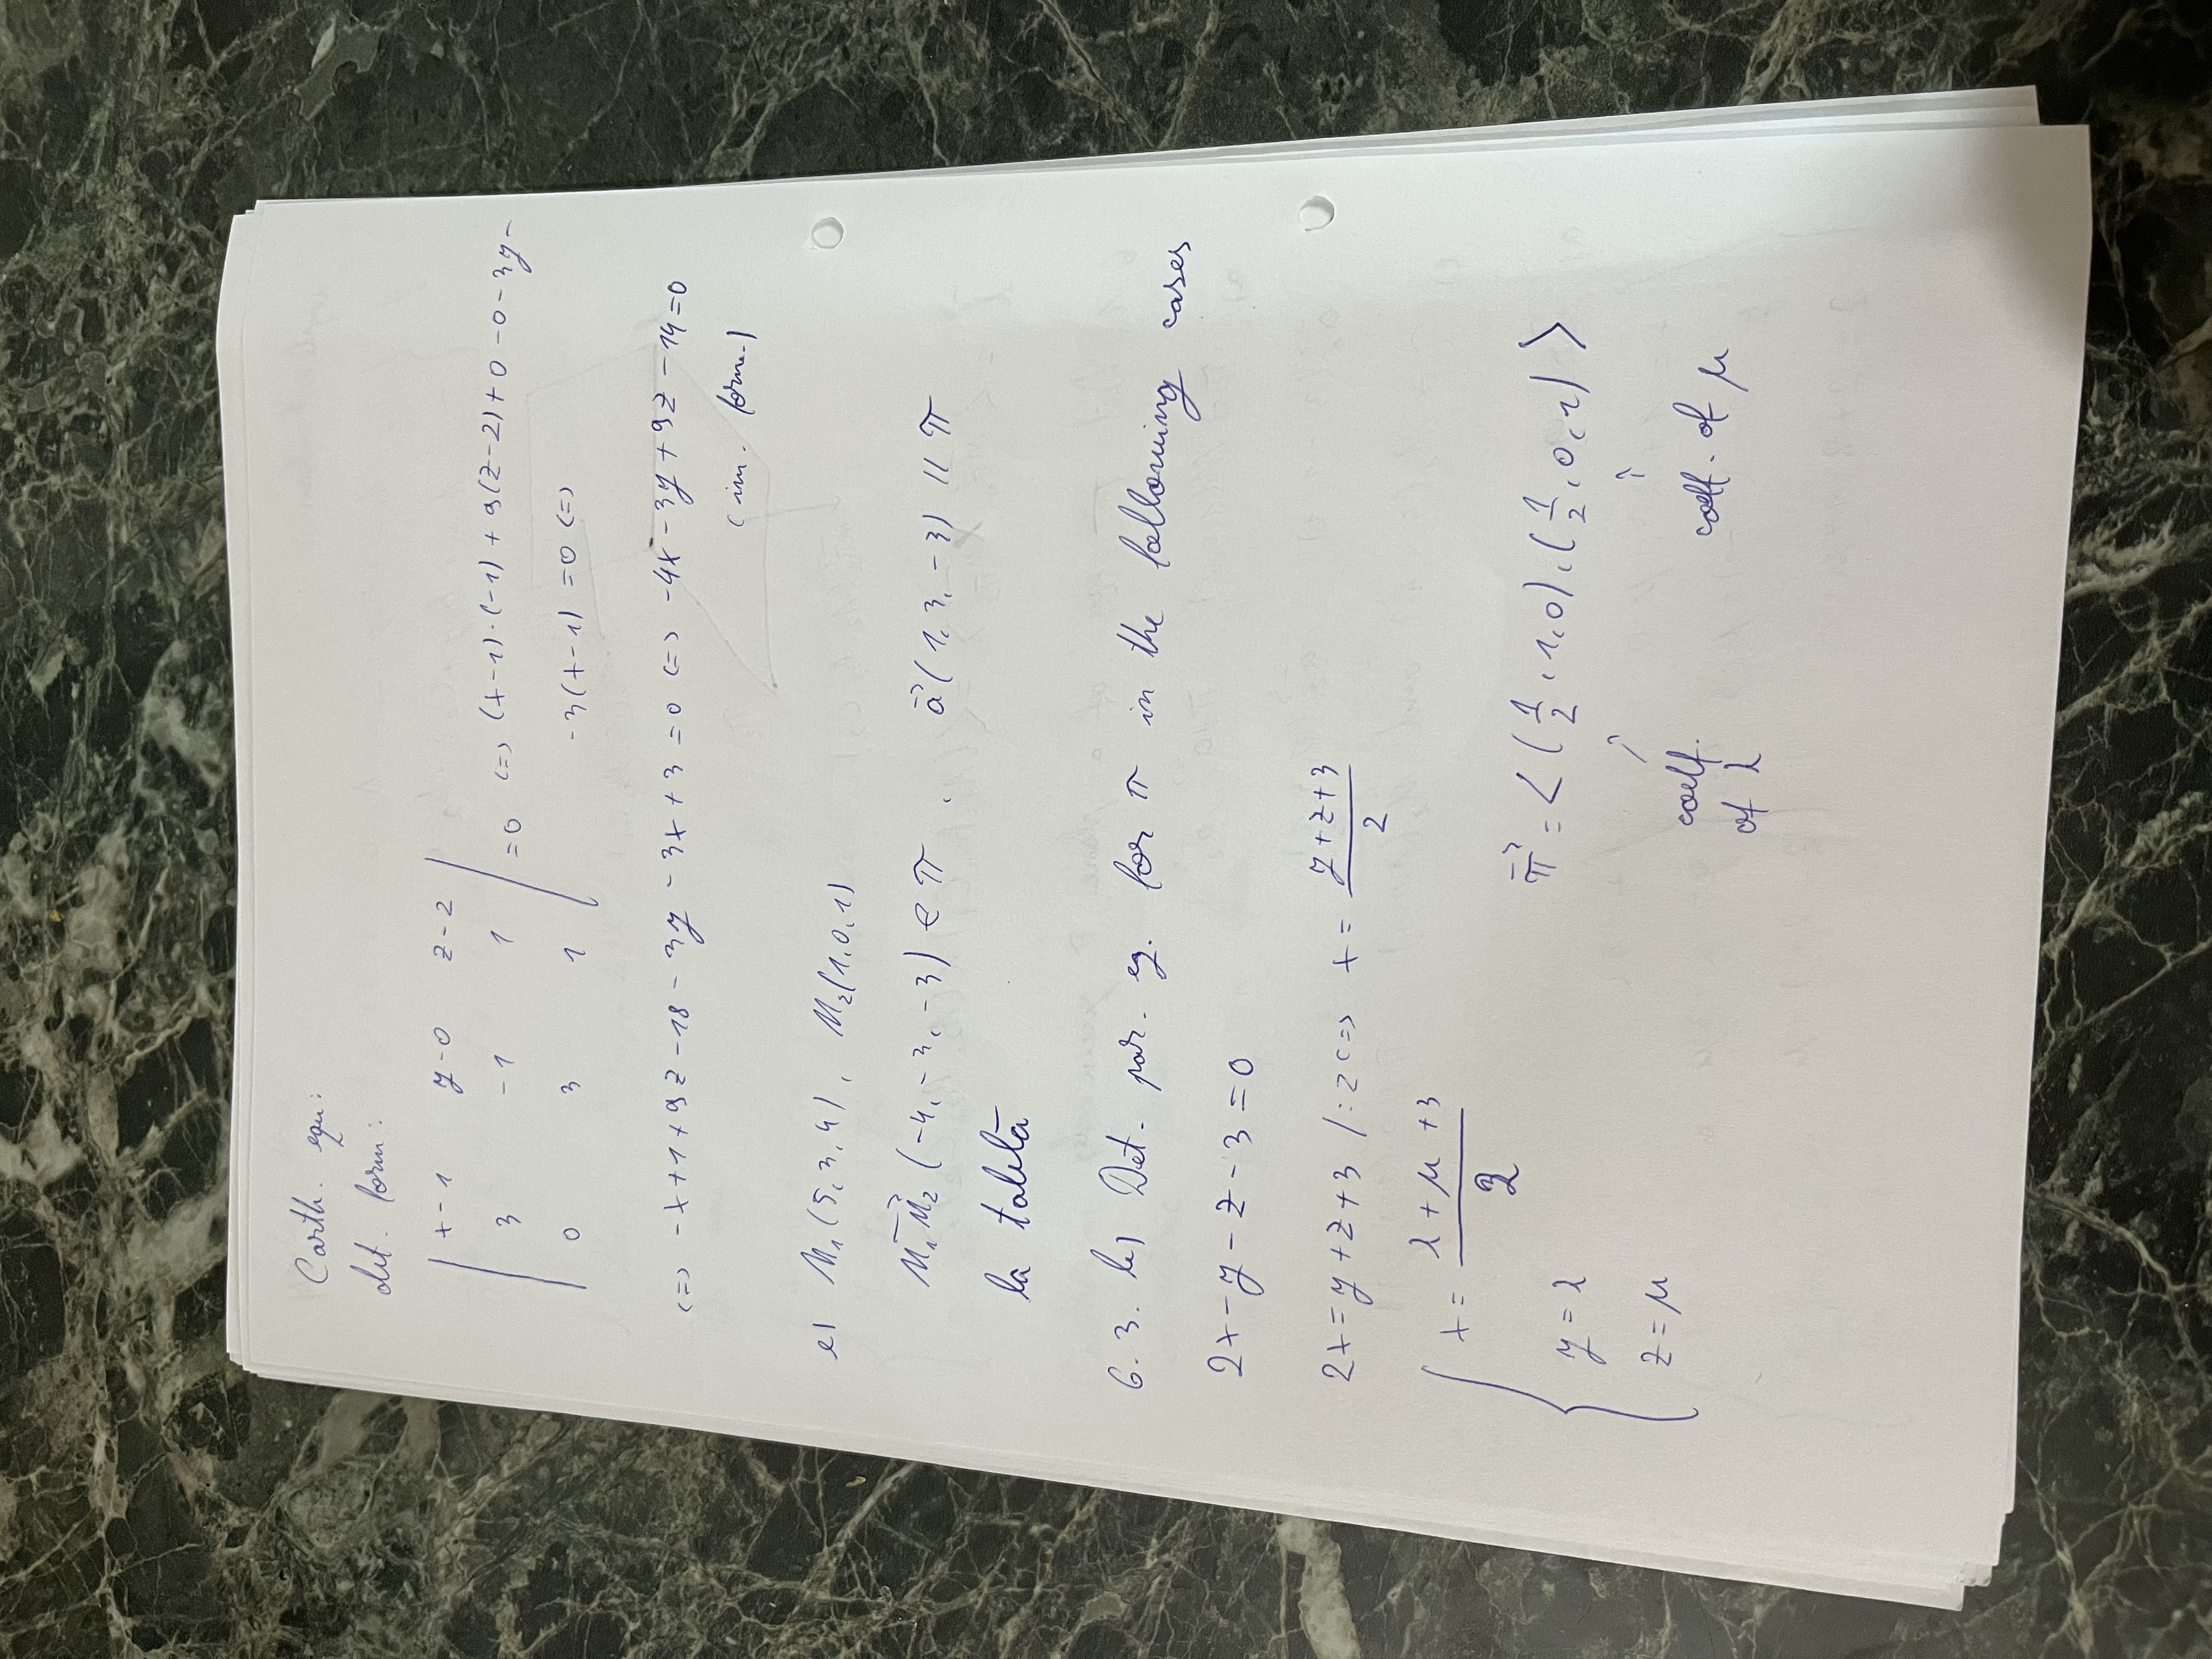 Carth. equ:
det. form:
| x-1 y-0 z-2 |
| 3 -1 1 | =0 <=> (x-1)·(-1) + 9(z-2) + 0 - 0 - 3y -
| 0 3 1 | -3(x-1) =0 <=>
<=> -x+1+9z-18-3y-3x+3=0 <=> -4x-3y+9z-14=0
(im. form.)
e) M₁(5,3,4), M₂(1,0,1)
M₁M₂ (-4,-3,-3) ∈ π, a(1,3,-3) || π
la tabelă
6.3. b) Det. par. eq. for π in the following cases
2x-y-z-3=0
2x=y+z+3 /:2 <=> x= (y+z+3)/2
x= (λ+μ+3)/2
y=λ
z=μ
π = <(1/2,1,0),(1/2,0,1)>
coeff. of λ
coeff. of μ